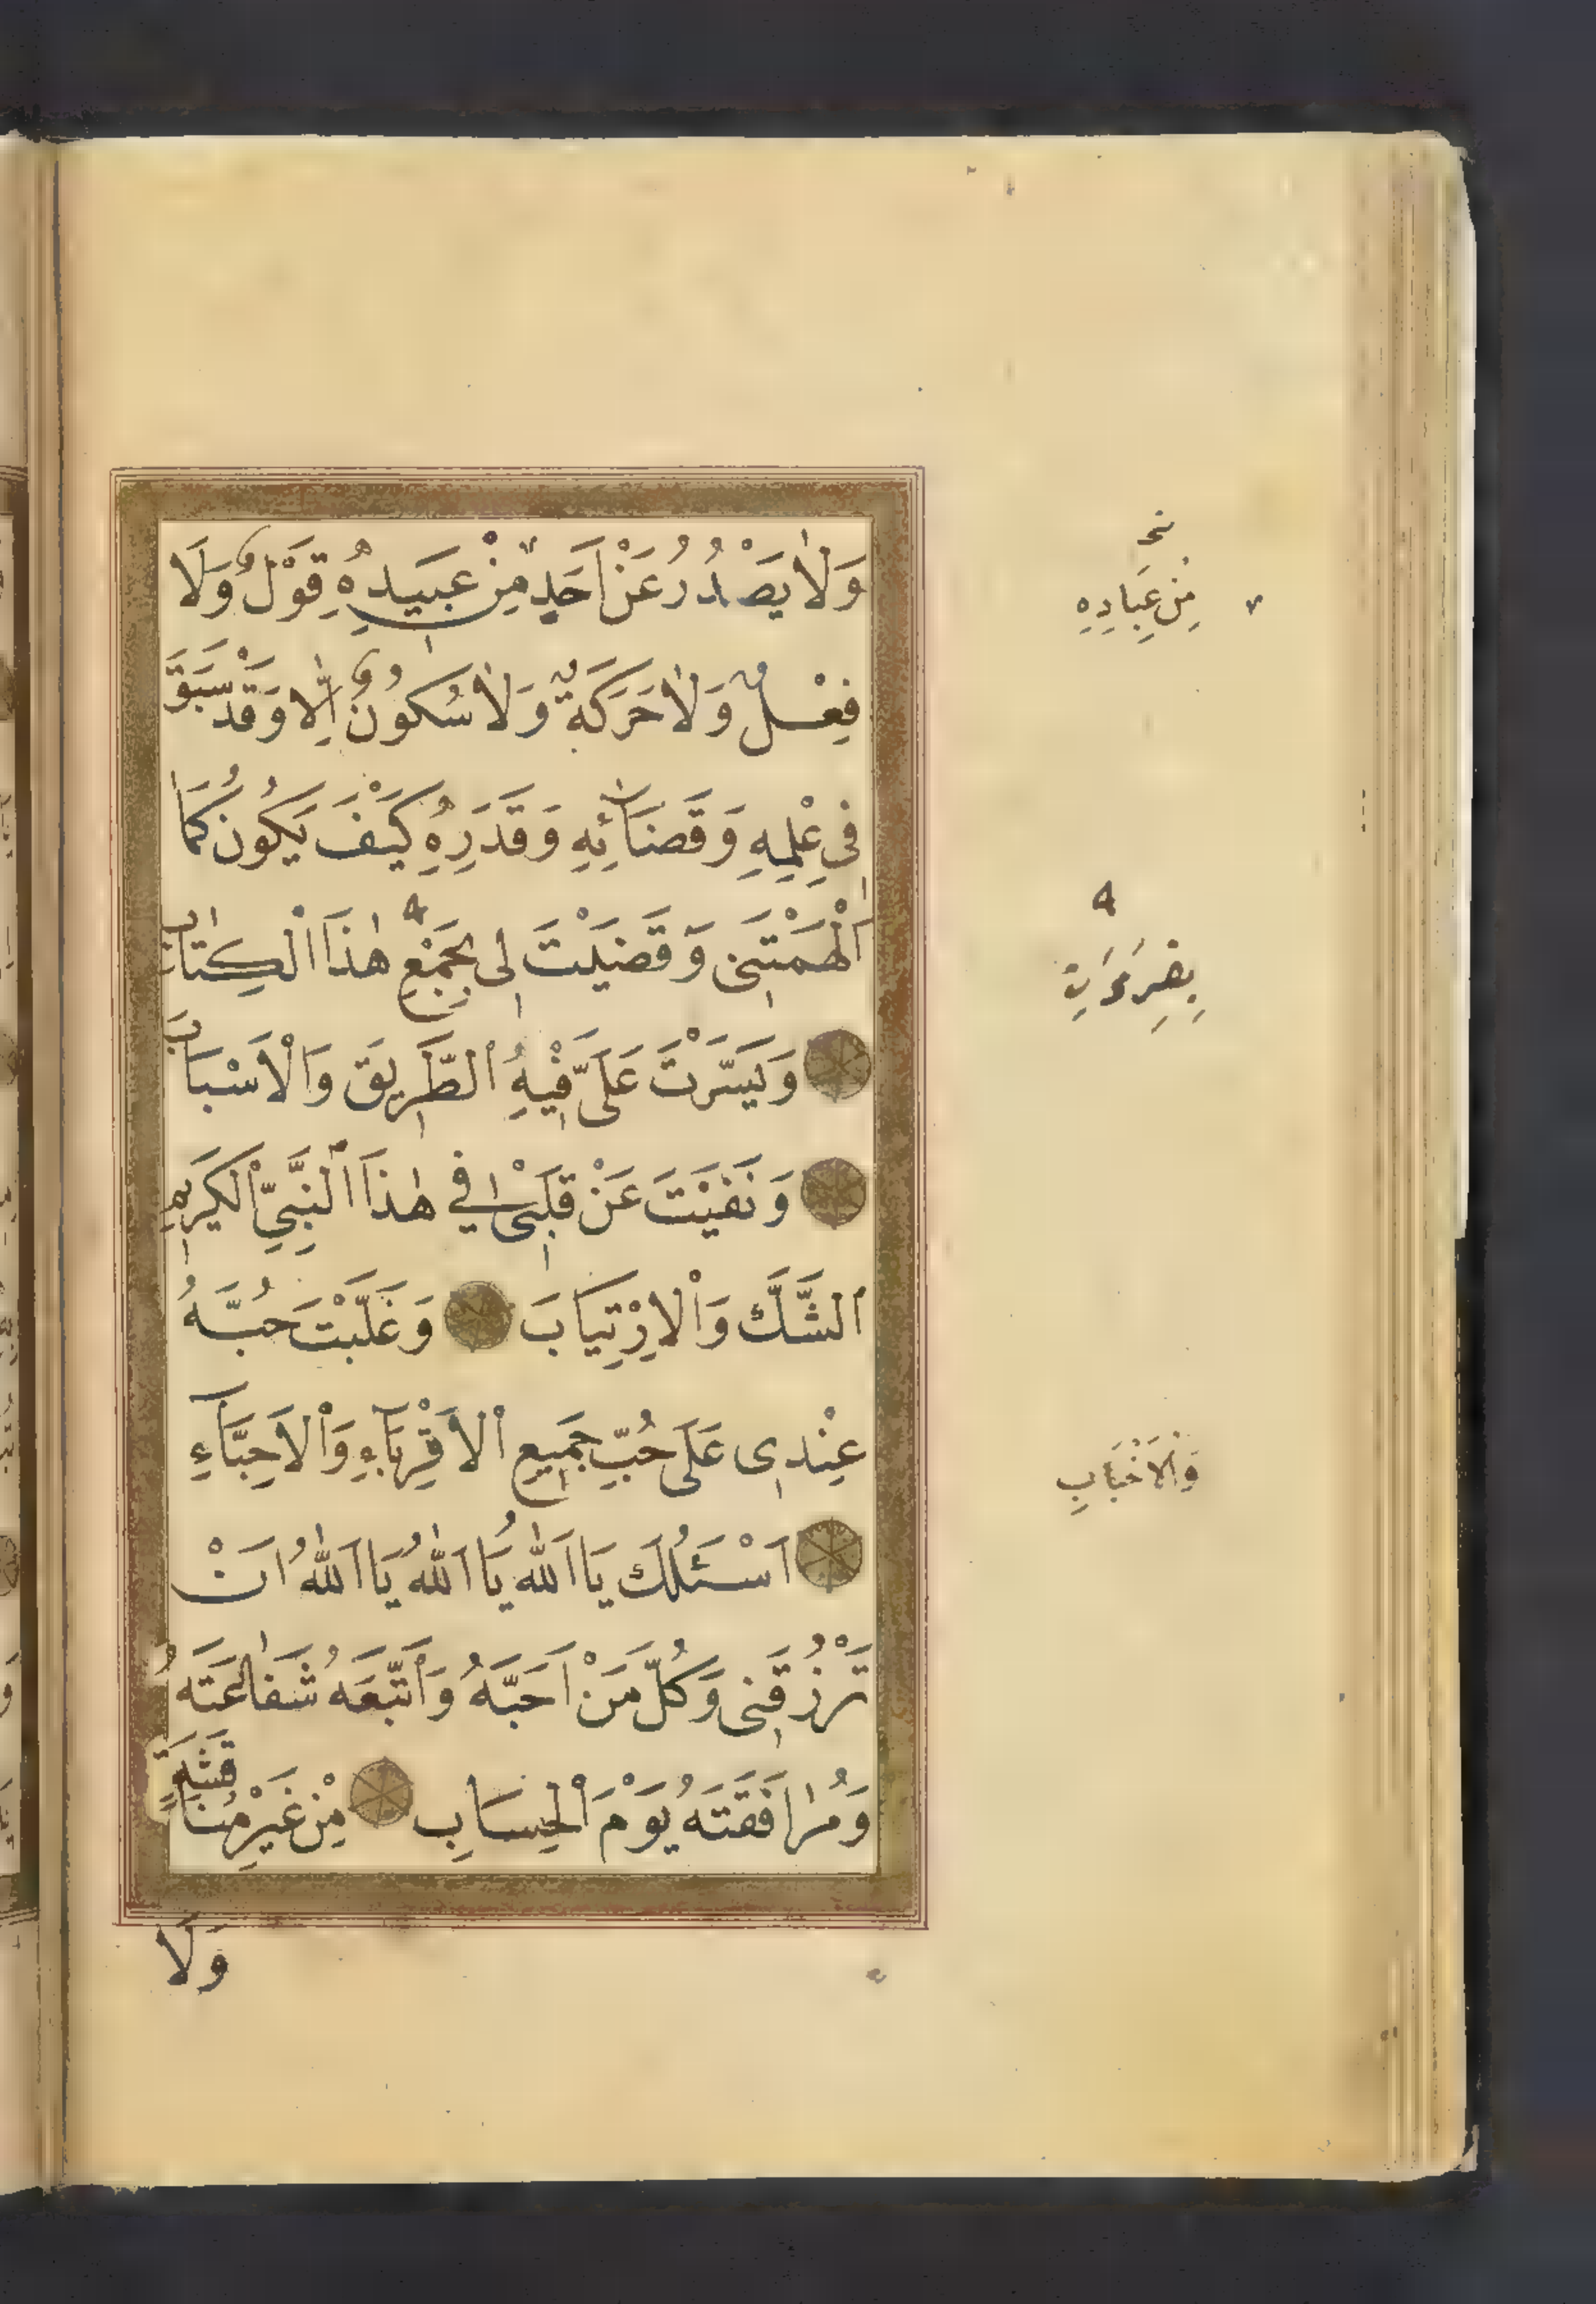 وَلَا يَصْدُرُ عَنْ اَحَدٍ مِنْ عَبِيدِهِ قَوْلٌ وَلَا
فِعْلٌ وَلَا حَرَكَةٌ وَلَا سُكُونٌ اِلَّا وَقَدْ سَبَقَ
فِي عِلْمِهِ وَقَضَائِهِ وَقَدَرِهِ كَيْفَ يَكُونُ كَمَا
اَلْهَمْتَنِي وَقَضَيْتَ لِي بِجَمْعِ هٰذَا الْكِتَابِ
وَيَسَّرْتَ عَلَيَّ فِيهِ الطَّرِيقَ وَالْاَسْبَابَ
وَنَفَيْتَ عَنْ قَلْبِي فِي هٰذَا النَّبِيِّ الْكَرِيمِ
الشَّكَّ وَالْاِرْتِيَابَ وَغَلَّبْتَ حُبَّهُ
عِنْدِي عَلَى حُبِّ جَمِيعِ الْاَقْرِبَاءِ وَالْاَحِبَّاءِ
اَسْئَلُكَ يَا اَللّٰهُ يَا اَللّٰهُ يَا اَللّٰهُ اَنْ
تَرْزُقَنِي وَكُلَّ مَنْ اَحَبَّهُ وَاتَّبَعَهُ شَفَاعَتَهُ
وَمُرَافَقَتَهُ يَوْمَ الْحِسَابِ مِنْ غَيْرِ مُنَاقَشَةٍ
وَلَا
مِنْ عِبَادِهِ
وَالْاَحْبَابِ